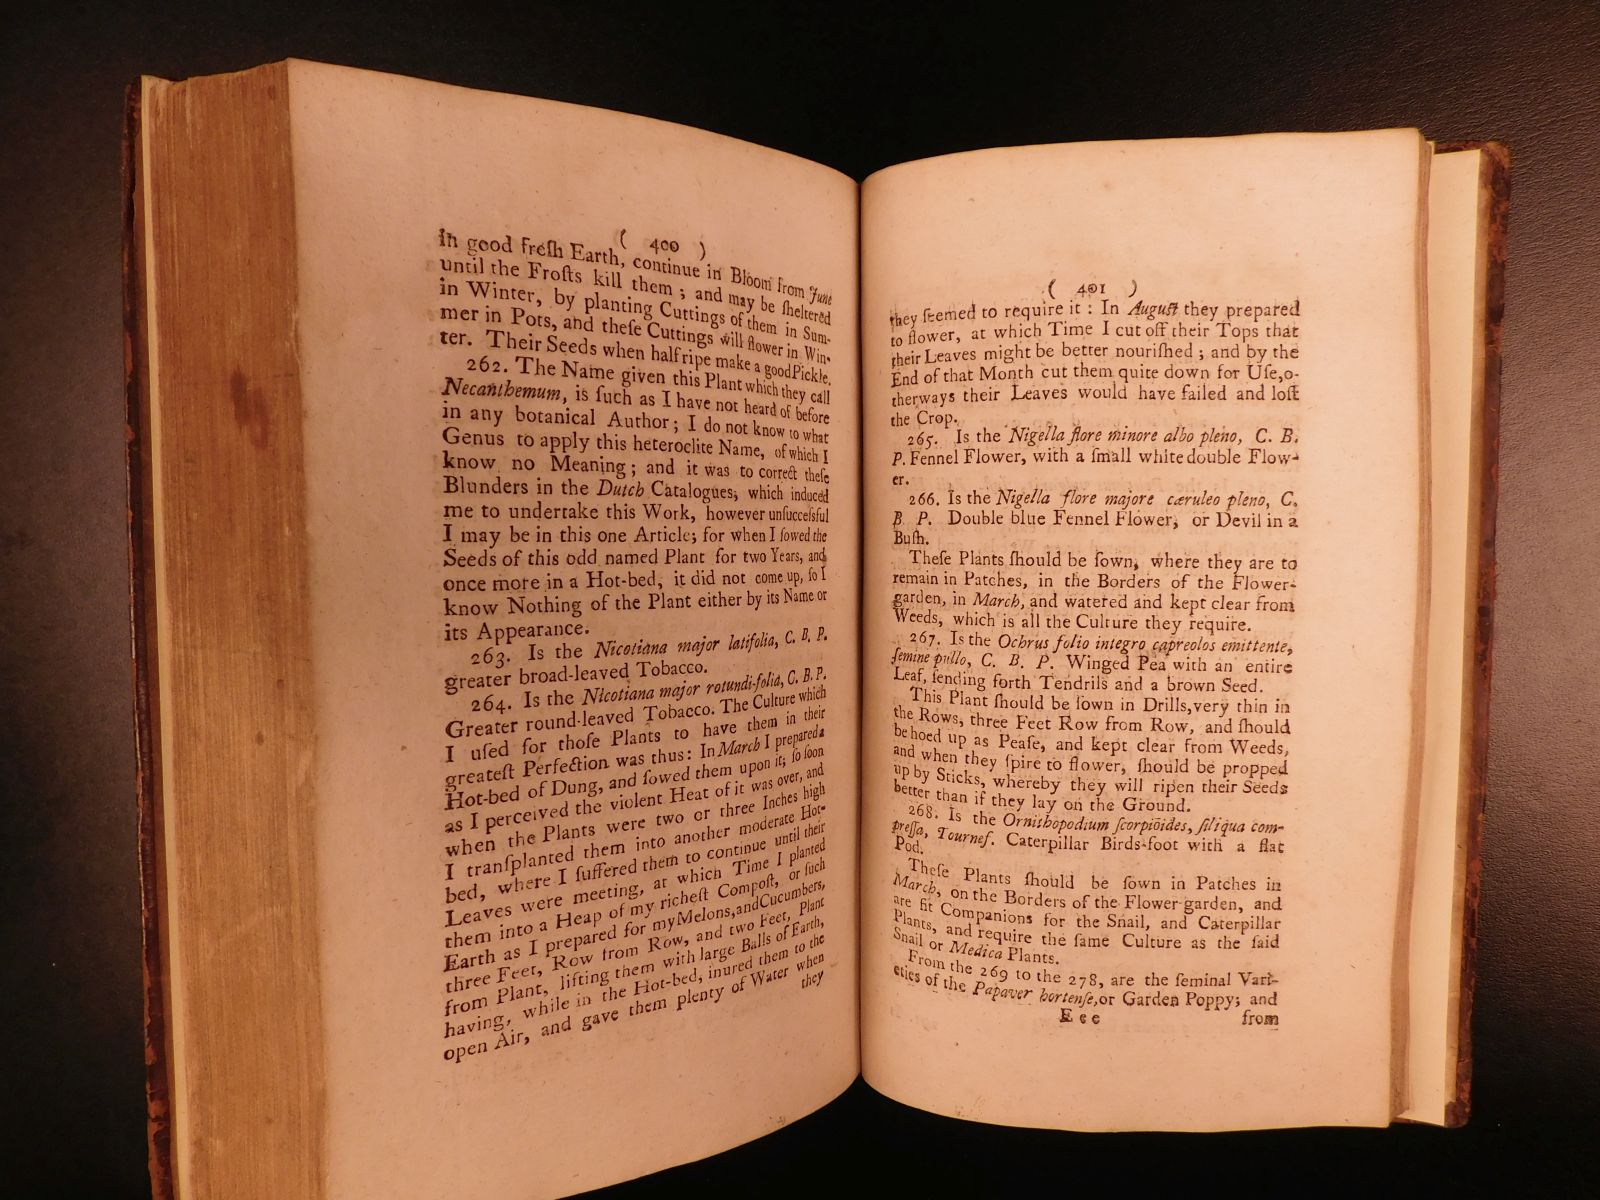 ( 400 )
in good freſh Earth, continue in Bloom from June
until the Froſts kill them ; and may be ſheltered
in Winter, by planting Cuttings of them in Sum-
mer in Pots, and theſe Cuttings will flower in Win-
ter. Their Seeds when half ripe make a good Pickle.
262. The Name given this Plant which they call
Necanthemum, is ſuch as I have not heard of before
in any botanical Author ; I do not know to what
Genus to apply this heteroclite Name, of which I
know no Meaning ; and it was to correct theſe
Blunders in the Dutch Catalogues, which induced
me to undertake this Work, however unſucceſsful
I may be in this one Article; for when I ſowed the
Seeds of this odd named Plant for two Years, and
once more in a Hot-bed, it did not come up, ſo I
know Nothing of the Plant either by its Name or
its Appearance.
263. Is the Nicotiana major latifolia, C. B. P.
greater broad-leaved Tobacco.
264. Is the Nicotiana major rotundi-folia, C. B. P.
Greater round-leaved Tobacco. The Culture which
I uſed for thoſe Plants to have them in their
greateſt Perfection was thus : In March I prepared a
Hot-bed of Dung, and ſowed them upon it; ſo ſoon
as I perceived the violent Heat of it was over, and
when the Plants were two or three Inches high
I tranſplanted them into another moderate Hot-
bed, where I ſuffered them to continue until their
Leaves were meeting, at which Time I planted
them into a Heap of my richeſt Compoſt, or ſuch
Earth as I prepared for my Melons, and Cucumbers,
three Feet, Row from Row, and two Feet, Plant
from Plant, lifting them with large Balls of Earth,
having, while in the Hot-bed, inured them to the
open Air, and gave them plenty of Water when
they
( 401 )
they ſeemed to require it : In Auguſt they prepared
to flower, at which Time I cut off their Tops that
their Leaves might be better nouriſhed ; and by the
End of that Month cut them quite down for Uſe, o-
therways their Leaves would have failed and loſt
the Crop.
265. Is the Nigella flore minore albo pleno, C. B.
P. Fennel Flower, with a ſmall white double Flow-
er.
266. Is the Nigella flore majore cæruleo pleno, C.
B P. Double blue Fennel Flower, or Devil in a
Buſh.
Theſe Plants ſhould be ſown, where they are to
remain in Patches, in the Borders of the Flower-
garden, in March, and watered and kept clear from
Weeds, which is all the Culture they require.
267. Is the Ochrus folio integro capreolos emittente,
ſemine pullo, C. B. P. Winged Pea with an entire
Leaf, ſending forth Tendrils and a brown Seed.
This Plant ſhould be ſown in Drills, very thin in
the Rows, three Feet Row from Row, and ſhould
be hoed up as Peaſe, and kept clear from Weeds,
and when they ſpire to flower, ſhould be propped
up by Sticks, whereby they will ripen their Seeds
better than if they lay on the Ground.
268. Is the Ornithopodium ſcorpioides, ſiliqua com-
preſſa, Tournef. Caterpillar Birds-foot with a flat
Pod.
Theſe Plants ſhould be ſown in Patches in
March, on the Borders of the Flower-garden, and
are fit Companions for the Snail, and Caterpillar
Plants, and require the ſame Culture as the ſaid
Snail or Medica Plants.
From the 269 to the 278, are the ſeminal Vari-
eties of the Papaver hortenſe, or Garden Poppy; and
E e e from